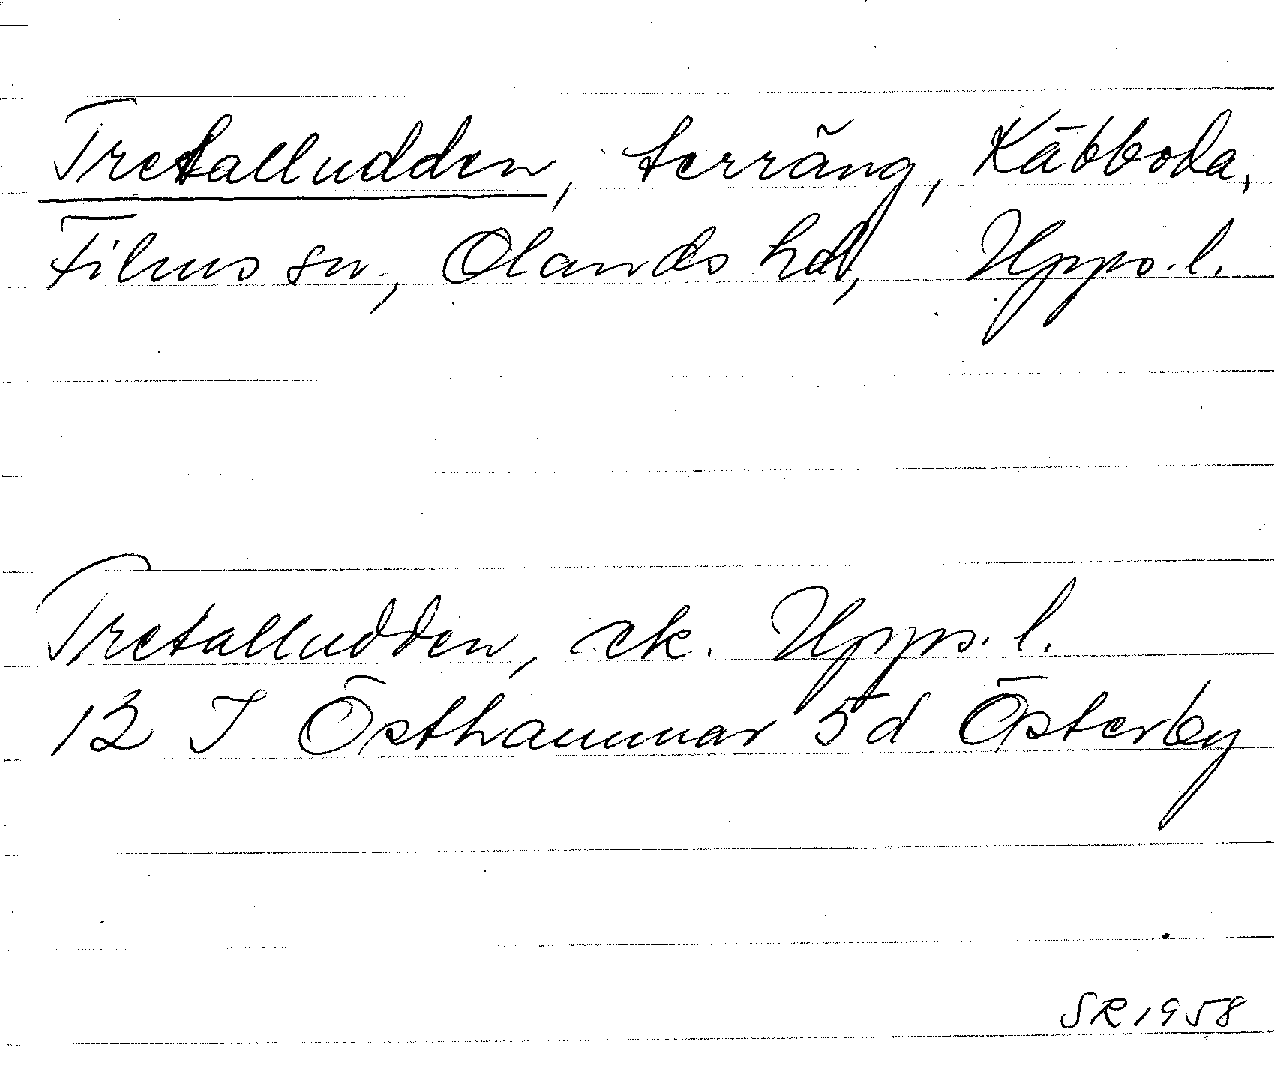 Tretalludden, terräng, Käbboda,
Films sn, Olands hd, Upps. l.
Tretalludden, ek. Upps. l.
12 I Östhammar 5d Österby
SR 1958